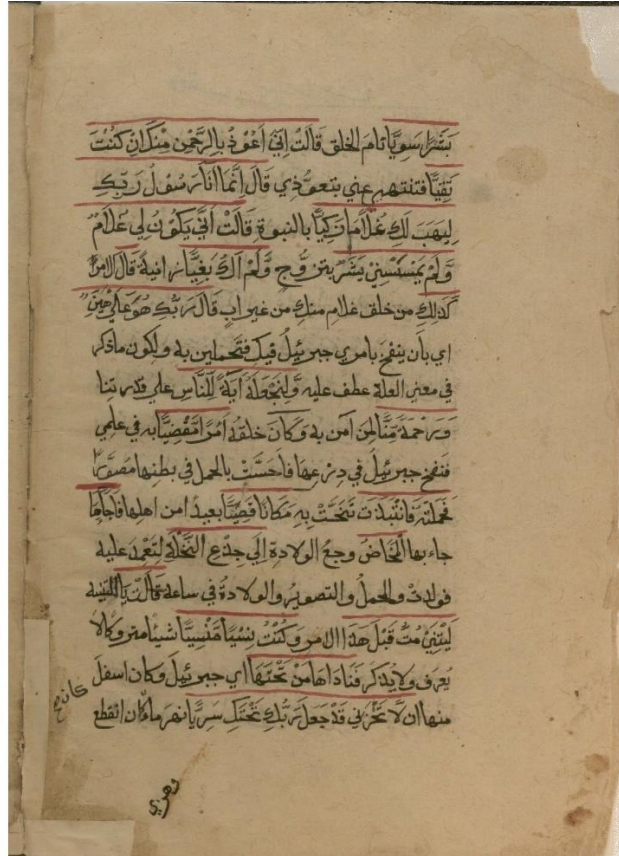 بَشَرًا سَوِيًّا تام الخلق قَالَتْ اِنِّي اَعُوْذُ بِالرَّحْمٰنِ مِنْكَ اِنْ كُنْتَ
تَقِيًّا فتنتهي عني بتعوذي قَالَ اِنَّمَا اَنَا رَسُوْلُ رَبِّكِ
لِيَهَبَ لَكِ غُلَامًا زَكِيًّا بالنبوة قَالَتْ اَنّٰي يَكُوْنُ لِي غُلَامٌ
وَّلَمْ يَمْسَسْنِيْ بَشَرٌ بتزوج وَّلَمْ اَكُ بَغِيًّا زانية قَالَ الامر
كَذٰلِكِ من خلق غلام منك من غير اب قَالَ رَبُّكِ هُوَ عَلَيَّ هَيِّنٌ
اي بان ينفخ بامري جبرئيل فيك فتحملين به ولكون ما ذكر
في معني العلة عطف عليه وَلِنَجْعَلَهٗ اٰيَةً لِّلنَّاسِ علي قدرتنا
وَرَحْمَةً مِّنَّا لمن آمن به وَكَانَ خلقه اَمْرًا مَّقْضِيًّا به في علمي
فنفخ جبرئيل في درعها فاحست بالحمل في بطنها مصورا
فَحَمَلَتْهُ فَانْتَبَذَتْ تنحت بِهٖ مَكَانًا قَصِيًّا بعيدا من اهلها فَاَجَآءَهَا
جاء بها الْمَخَاضُ وجع الولادة اِلٰي جِذْعِ النَّخْلَةِ لتعتمد عليه
فولدت والحمل والتصوير والولادة في ساعة قَالَتْ يَا للتنبيه
لَيْتَنِيْ مُتُّ قَبْلَ هٰذَا الامر وَكُنْتُ نِسْيًا مَّنْسِيًّا شيئا متروكا لا
يعرف ولا يذكر فَنَادٰاهَا مِنْ تَحْتِهَا اي جبرئيل وكان اسفل
منها اَنْ لَّا تَحْزَنِي قَدْ جَعَلَ رَبُّكِ تَحْتَكِ سَرِيًّا نهر ماء كان انقطع
وهزي